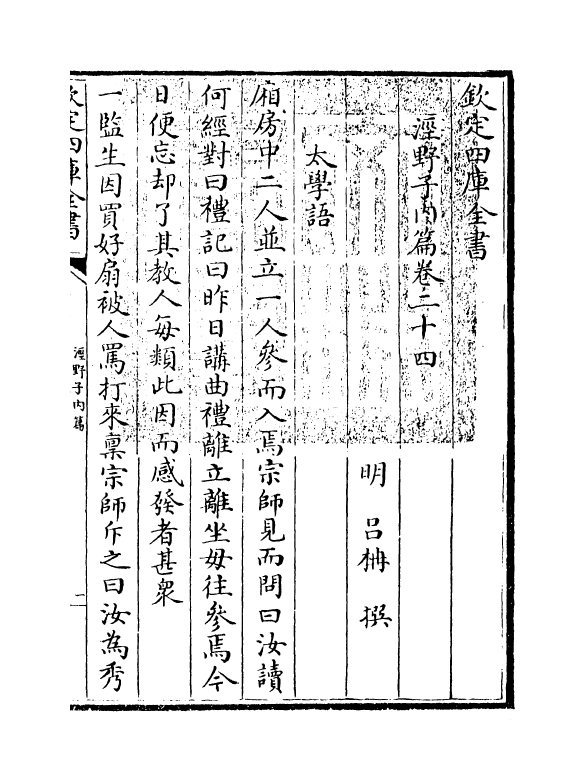 欽定四庫全書
涇野子內篇卷二十四
明　呂柟　撰
太學語
廂房中二人並立一人參而入焉宗師見而問曰汝讀
何經對曰禮記曰昨日講曲禮離立離坐毋往參焉今
日便忘却了其教人每類此因而感發者甚衆
一監生因買好扇被人罵打來稟宗師斥之曰汝為秀
欽定四庫全書
涇野子內篇